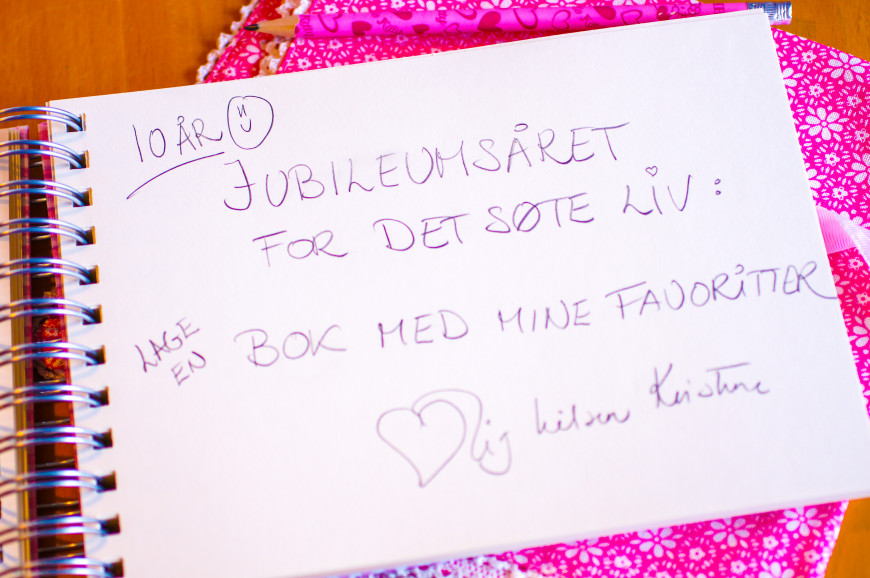 10 ÅR
JUBILEUMSÅRET
FOR DET SØTE LIV :
LAGE
EN
BOK MED MINE FAVORITTER
lig hilsen Kristine